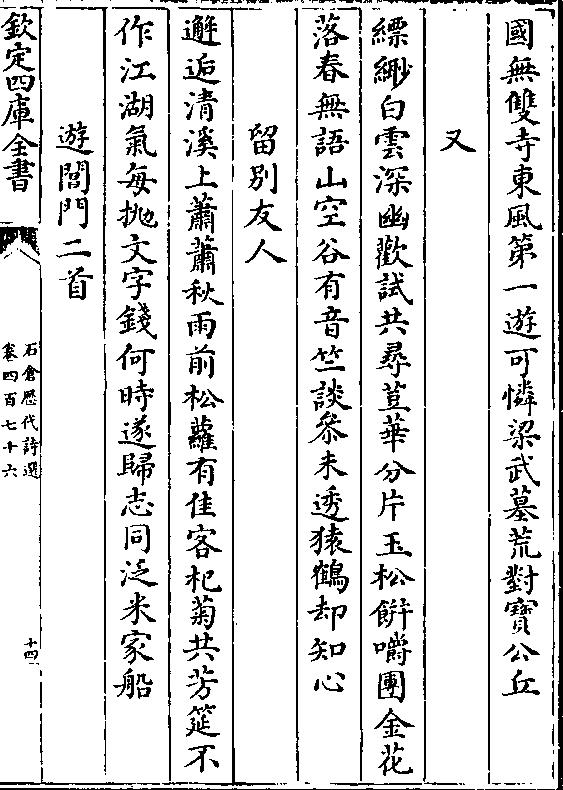 國無雙寺東風第一遊可憐梁武墓荒對寶公丘
又
縹緲白雲深幽歡試共尋荳華分片玉松餅嚼團金花
落春無語山空谷有音竺談參未透猿鶴却知心
留别友人
邂逅清溪上蕭蕭秋雨前松蘿有佳客杞菊共芳筵不
作江湖氣每抛文字錢何時遂歸志同泛米家船
遊閶門二首
欽定四庫全書
石倉歴代詩選
卷四百七十六
十四